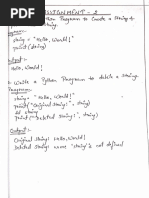 ASSIGNMENT - 2
Python Program to Create a String &
string
Program:-
string = "Hello, World!"
print(string)
Output:-
Hello, World!
Write a Python Program to delete a string
Program:-
string = "Hello, World!"
print("Original String:", string)
del string
print("Deleted String:", string)
Output:-
Original String: Hello, World!
Deleted String: name 'string' is not defined